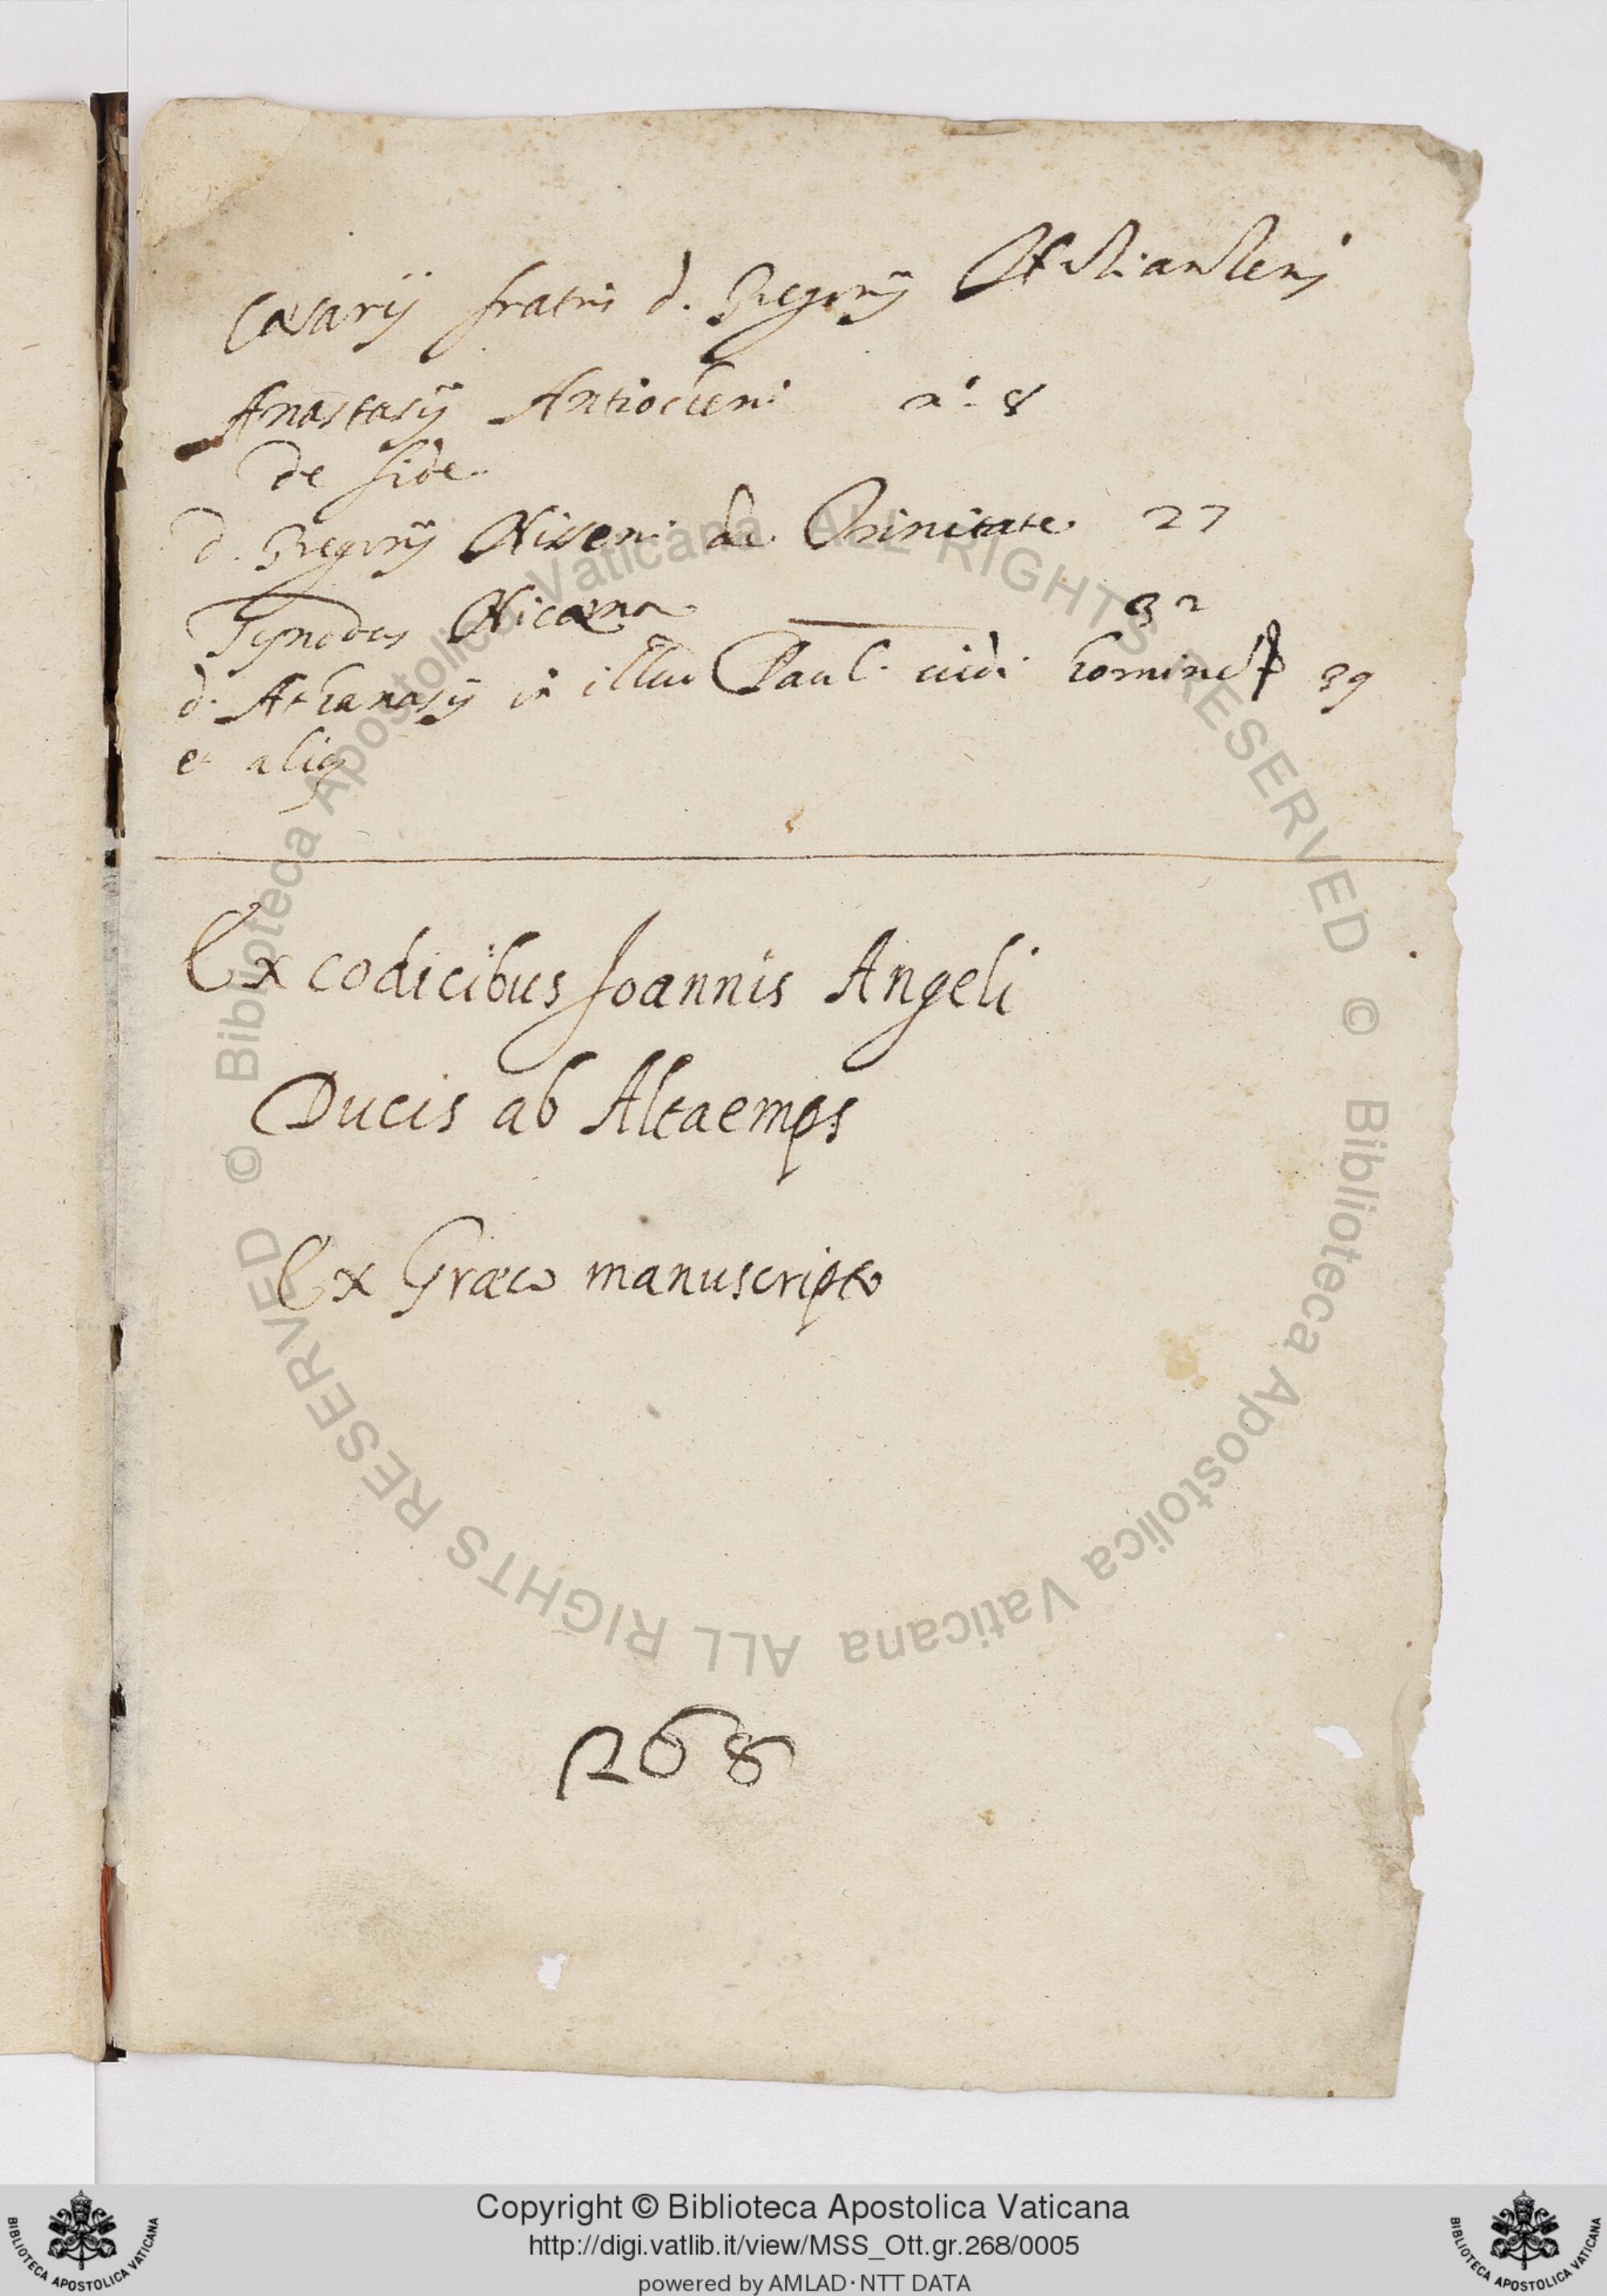 Cæsarij fratris d. Gregorij Nazianzeni
Anastasij Antiocheni n.° 8
de fide
d. Gregorij Nisseni de Trinitate 27
Synodus Nicæna 32
d. Athanasij in illud Pauli uidi homine 39
et alia
Ex codicibus Joannis Angeli
Ducis ab Altaemps
Ex Græco manuscripto
268
© Biblioteca Apostolica Vaticana ALL RIGHTS RESERVED © Biblioteca Apostolica Vaticana ALL RIGHTS RESERVED
Copyright © Biblioteca Apostolica Vaticana
http://digi.vatlib.it/view/MSS_Ott.gr.268/0005
powered by AMLAD · NTT DATA
BIBLIOTECA APOSTOLICA VATICANA
BIBLIOTECA APOSTOLICA VATICANA